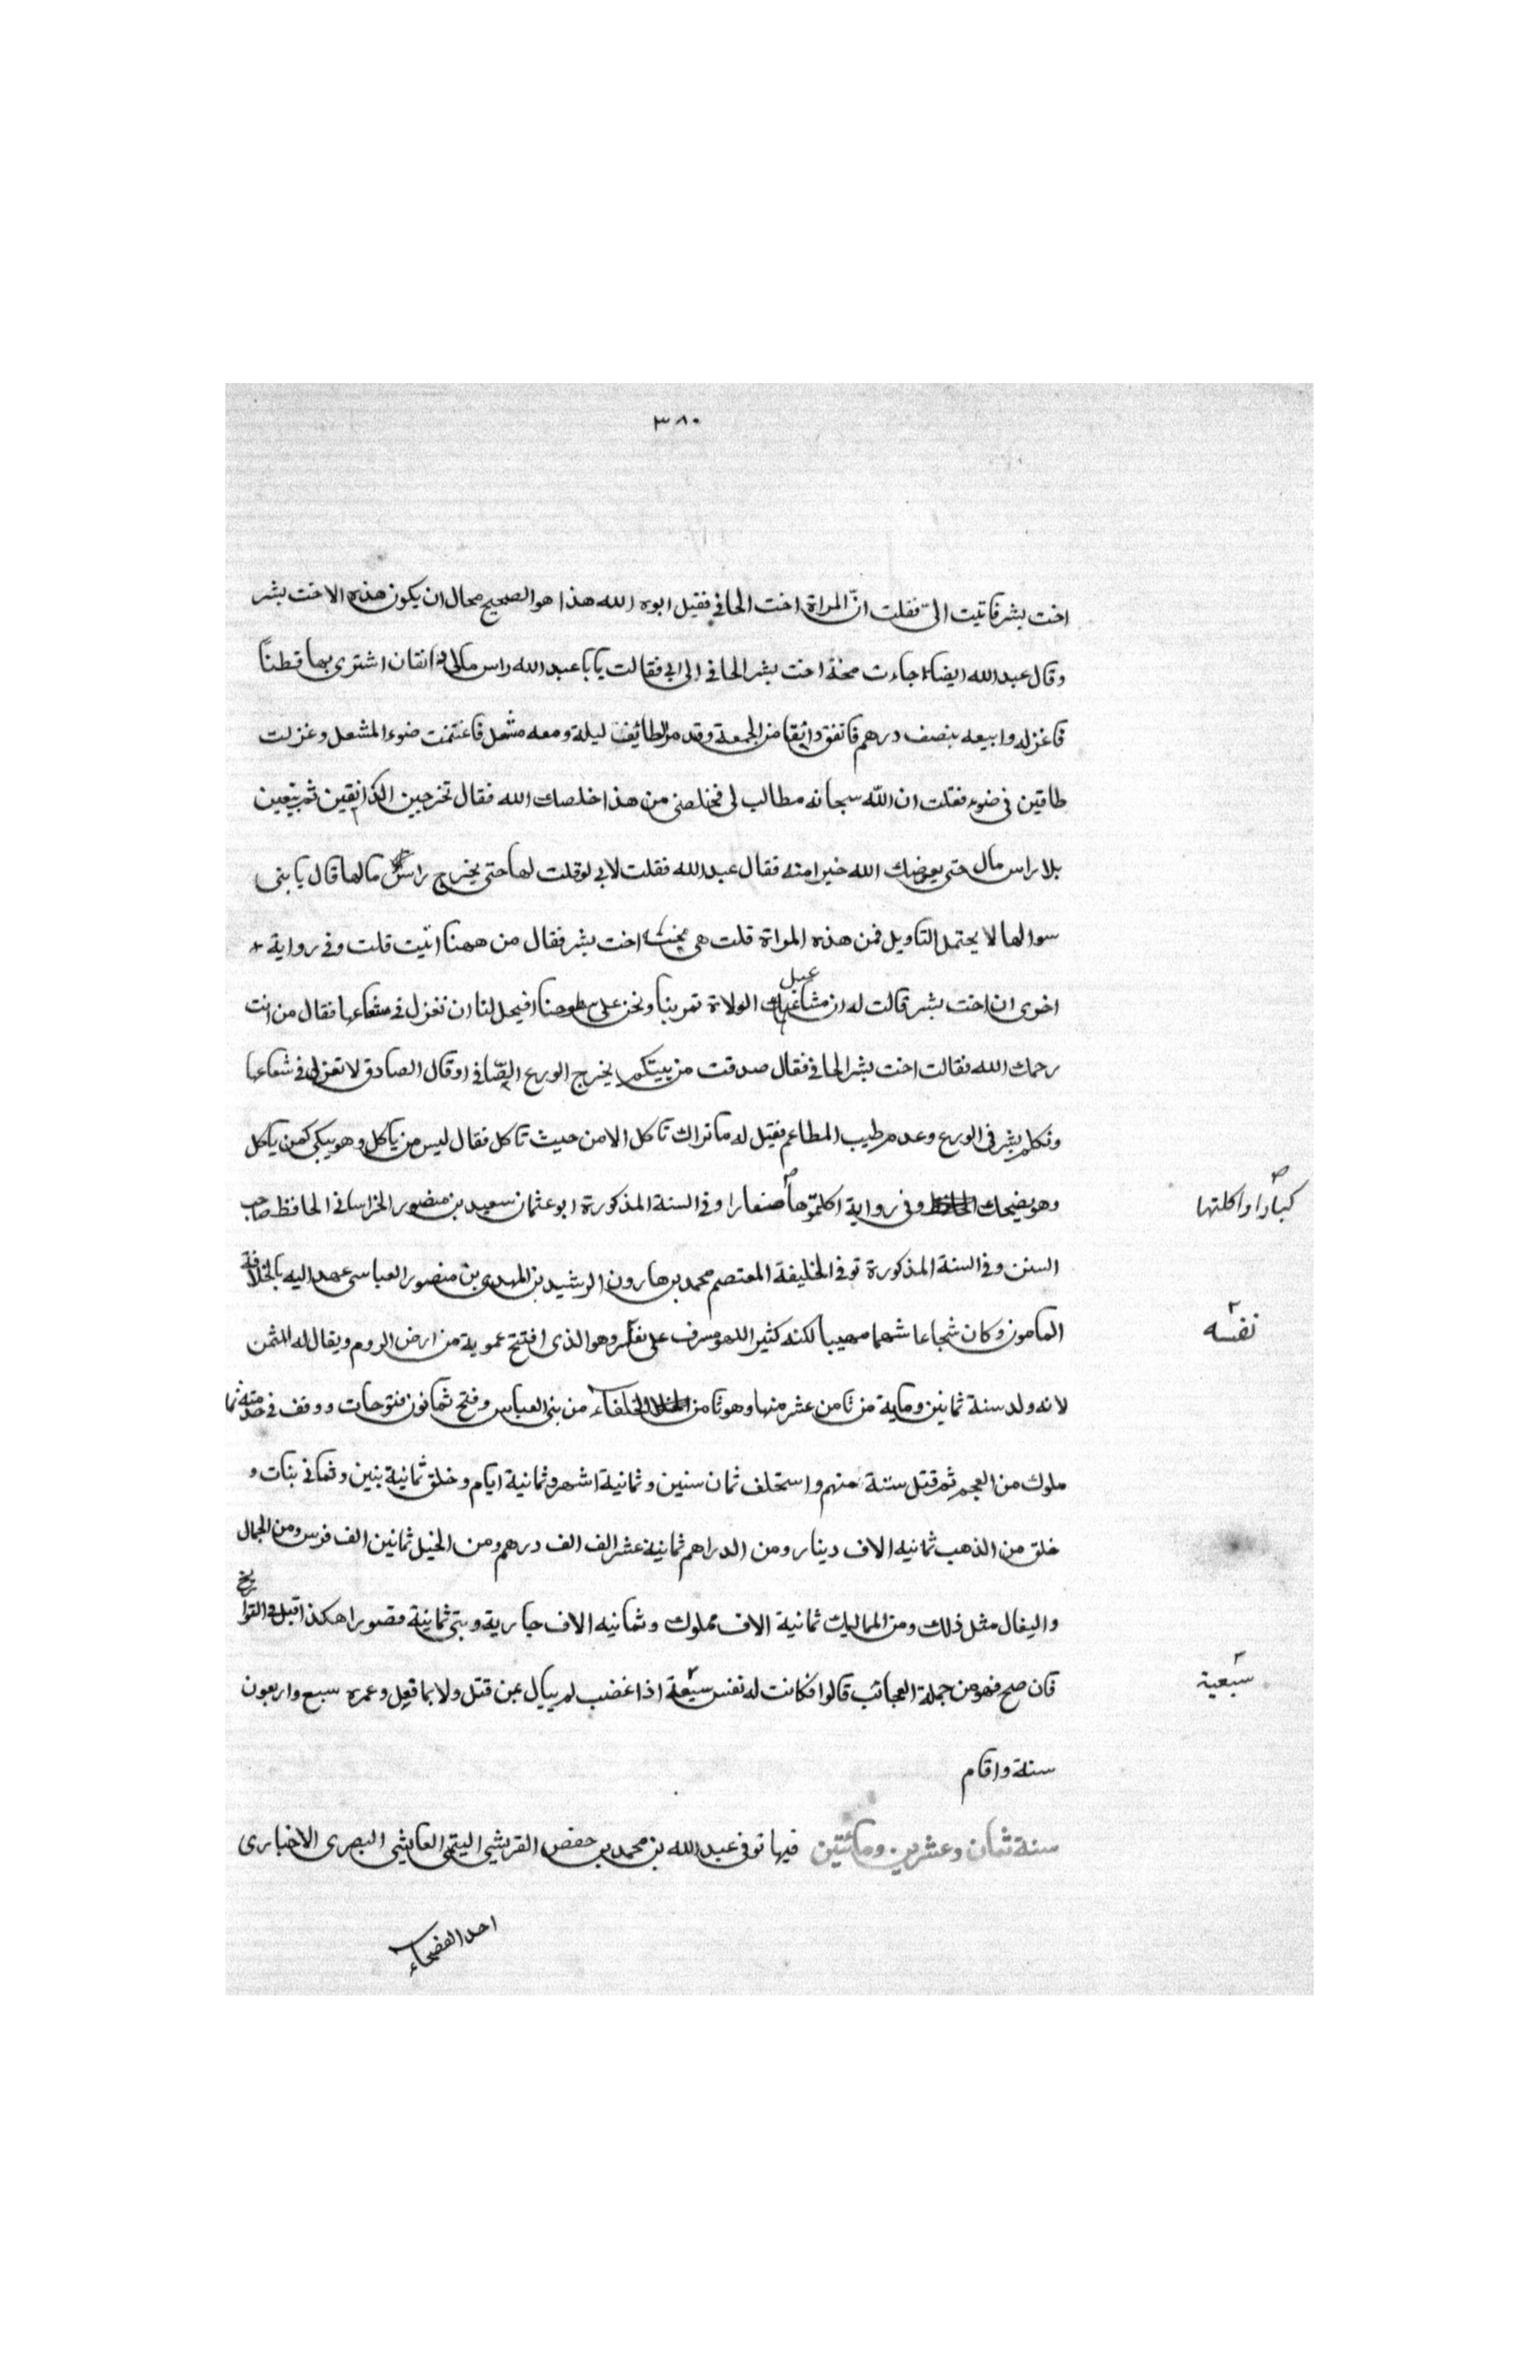 ٣٨٠
اخت بشر فاتيت الىّ فقلت انّ المراة اخت الحافى فقيل ابوه الله هذا هو الصحيح محال ان يكون هذه الا اخت بشر
وقال عبد الله ايضا جاءت مخة اخت بشر الحافى الى ابى فقالت يابا عبد الله راس مالى دانقان اشترى بهما قطناً
فاغزله وابيعه بنصف درهم فانفق دانقا من الجمعة وقد مر الطائف ليلة ومعه مشعل فاغتنمت ضوء المشعل وغزلت
طاقين فى ضوءه فقلت ان الله سبحانه مطالب لى فخلصنى من هذا خلصك الله فقال تخرجين الدانقين ثم تبقين
بلا راس مال حتى يعوضك الله خيرا منه فقال عبد الله فقلت لابى لو قلت لها حتى يخرج راس مالها قال يا بنى
سوالها لا يحتمل التاويل فمن هذه المراة قلت هى مخة اخت بشر فقال من ههنا اتيت قلت وفى رواية
اخرى ان اخت بشر قالت له ان مشاعل الولاة تمر بنا ونحن على سطوحنا افيحل لنا ان نغزل فى شعاعها فقال من انت
رحمك الله فقالت اخت بشر الحافى فقال صدقت من بيتكم يخرج الورع الصّافى او قال الصادق لا تغزلى فى شعاعها
وتكلم بشر فى الورع وعدم طيب المطاعم فقيل له ما نراك تاكل الا من حيث تاكل فقال ليس من ياكل وهو يبكى كمن ياكل
وهو يضحك وفى رواية اكلتموها صغارا وفى السنة المذكورة ابو عثمان سعيد بن منصور الخراسانى الحافظ صاحب
كبارا واكلتها
السنن وفى السنة المذكورة توفى الخليفة المعتصم محمد بن هارون الرشيد بن المهدى بن منصور العباسى عهد اليه بالخلافة
المامون وكان شجاعا شهما مهيبا لكنه كثير اللهو مسرف على نفسه وهو الذى افتتح عمورية من ارض الروم ويقال له المثمن
نفسه
لانه ولد سنة ثمانين وماية من ثامن عشر منها وهو ثامن الخلفاء من بنى العباس وفتح ثمانون فتوحات ووقف فى خدمته ثما
ملوك من العجم ثم قتل ستة منهم واستخلف ثمان سنين وثمانية اشهر وثمانية ايام وخلق ثمانية بنين وثمانى بنات و
خلق من الذهب ثمانيه الاف دينار ومن الدراهم ثمانية عشر الف الف درهم ومن الخيل ثمانين الف فرس ومن الجمال
والبغال مثل ذلك ومن المماليك ثمانية الاف مملوك وثمانيه الاف جارية وبنى ثمانية قصورا هكذا قيل فى التواريخ
فان صح فهو من جملة العجائب قالوا فكانت له نفس سبعية اذا غضب لم يبال بمن قتل ولا بما فعل وعمره سبع واربعون
سبعية
سنة واقام
سنة ثمان وعشرين ومائتين فيها توفى عبد الله بن محمد بن حفص القرشى التيمى العايشى البصرى الاخبارى
احد الفصحاء